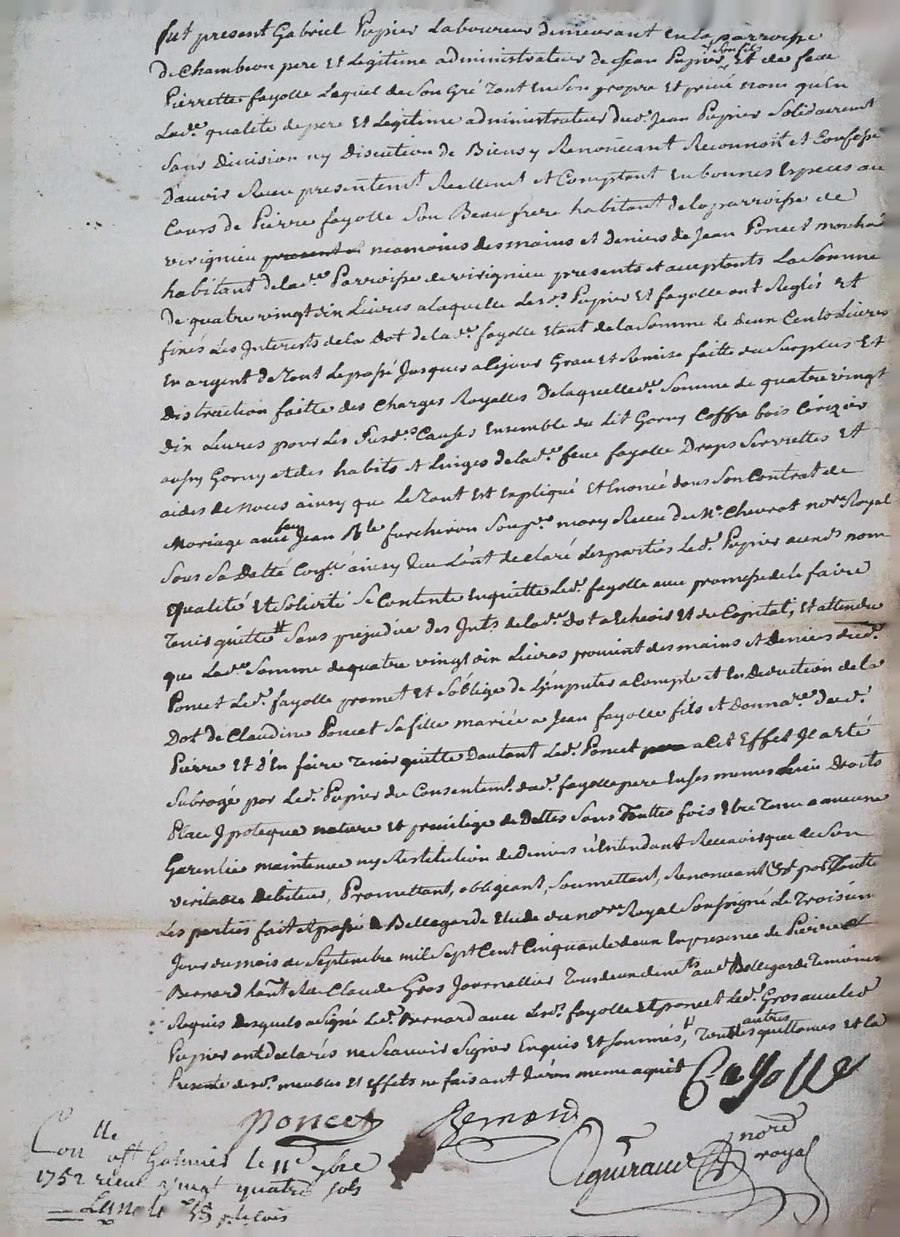 fut present Gabriel Pupier Laboureur demeurant en la parroisse
de Chambeon pere et Legitime administrateur de Jean Pupier son fils et de feue
Pierrette fayolle Lequel de son Gré tant en son propre et privé nom qu'en
Lad.e qualité de pere et Legitime administrateur dud. Jean Pupier Solidairem.t
sans division ny discution de Biens y Renonceant Reconnoit et Confesse
D'avoir Receu presentem.t Reellem.t et Comptant en bonnes Especes au
Cours de Pierre fayolle son Beau frere habitant de la parroisse de
virignieu neamoins des mains et deniers de Jean Poncet marchand
habitant de lad.e Parroisse de virignieu presents et acceptants La Somme
De quatre vingt dix Livres a laquelle Les d. Pupier et fayolle ont Reglés et
fixés Les Interests de la Dot de lad.e fayolle Etant de la Somme de deux Cents Livres
en argent de tout Le passé Jusques a Ce jour Grace et Remise faitte du Surplus et
distraction faitte des Charges Royalles De laquelle d.e Somme de quatre vingt
dix Livres pour Les Susd.s Causes Ensemble du Lit Garny Coffre bois Cerizier
aussy Garny et des habits et Linges de lad.e feue fayolle Draps Serviettes et
aides de Noces ainsy que Le tout Est Expliqué et Enoncé dans son Contrat de
Mariage avec feu Jean B.te furchiron son p.r mary Receu de M.e Chevrot no.re Royal
sous sa Datte ainsy que L'ont declaré Les parties Led. Pupier auxd. nom
qualité et Solidité Se Contente En quitte Led. fayolle avec promesse de le faire
tenir quitte Sans prejudice des Int.s de lad.e Dot a Echeoir et du Capital, et attendu
que Lad.e Somme de quatre vingt dix Livres provient des mains et Deniers dud.
Poncet Led. fayolle promet et S'oblige de L'imputer a Compte et en Deduction de la
Dot de Claudine Poncet sa fille mariée a Jean fayolle fils et Donna.re dud.
Pierre et d'En faire tenir quitte Dautant Led. Poncet a Cet Effet Il a Eté
subrogé par Led. Pupier du Consentem.t dud. fayolle pere En ses memes Lieux Droits
Place Ipoteque nature et privilege de Dettes sans toutes fois Etre tenu a aucune
Garentie maintenue ny Restitution de deniers n'Entendant Recevoir que de son
veritable debiteur, Promettant, obligeant, soumettant, Renonceant &c par toutte
Les parties fait et passé a Bellegarde Etude du no.re Royal soussigné Le troisieme
Jour du mois de Septembre mil sept Cent Cinquante deux En presence de Pierre
Bernard et de Claude Gros Journallier tous deux audit Bellegarde temoins
Requis desquels a signé Led. Bernard avec Lesd. fayolle et poncet Led. Gros avec led.
Pupier ont declarés ne Scavoir Signer Enquis et sommés, toutes autres quittances et la
Presente desd. meubles et Effets ne faisant qu'un meme aquit Fayolle
Poncet Bernard
no.re royal
Con.lle a S.t Galmier le 11.e 7bre
1752 receu vingt quatre sols